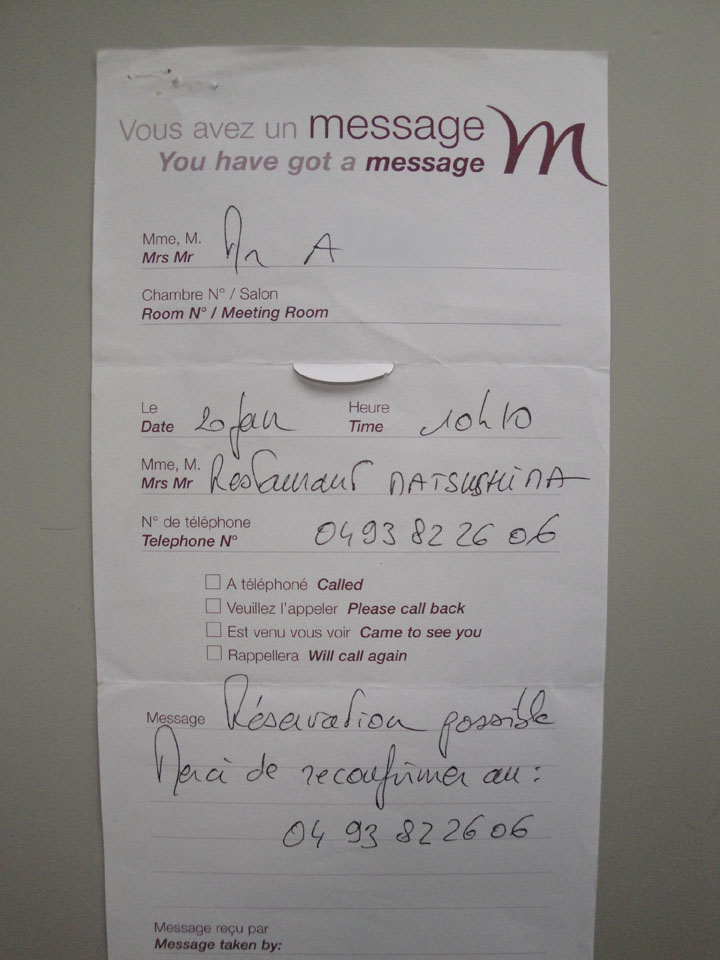 Vous avez un message
You have got a message
m
Mme, M.
Mrs Mr Mr A
Chambre N° / Salon
Room N° / Meeting Room
Le Heure
Date 20 Jan Time 10h10
Mme, M.
Mrs Mr Restaurant MATSUSHIMA
N° de téléphone
Telephone N° 04 93 82 26 06
A téléphoné Called
Veuillez l'appeler Please call back
Est venu vous voir Came to see you
Rappellera Will call again
Message Réservation possible
Merci de reconfirmer au :
04 93 82 26 06
Message reçu par
Message taken by: